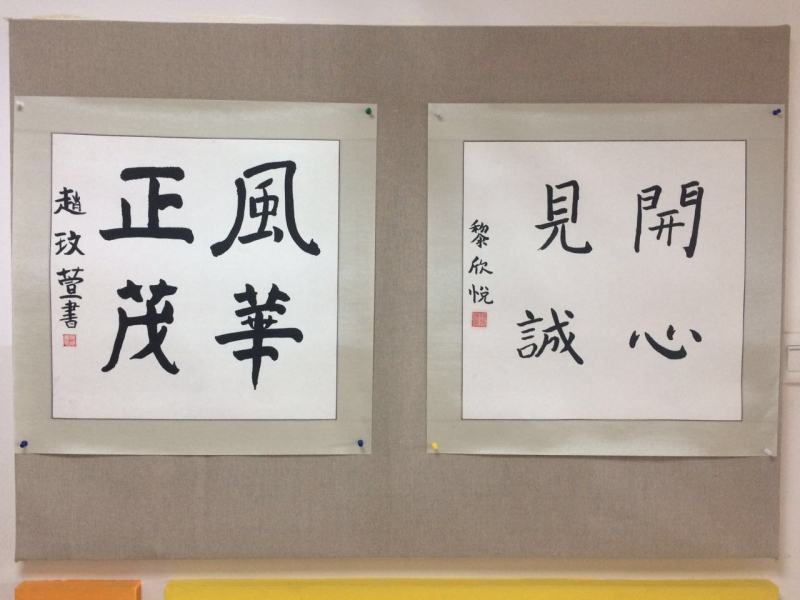 開心
見誠
黎欣悅
風華
正茂
趙玟萱書